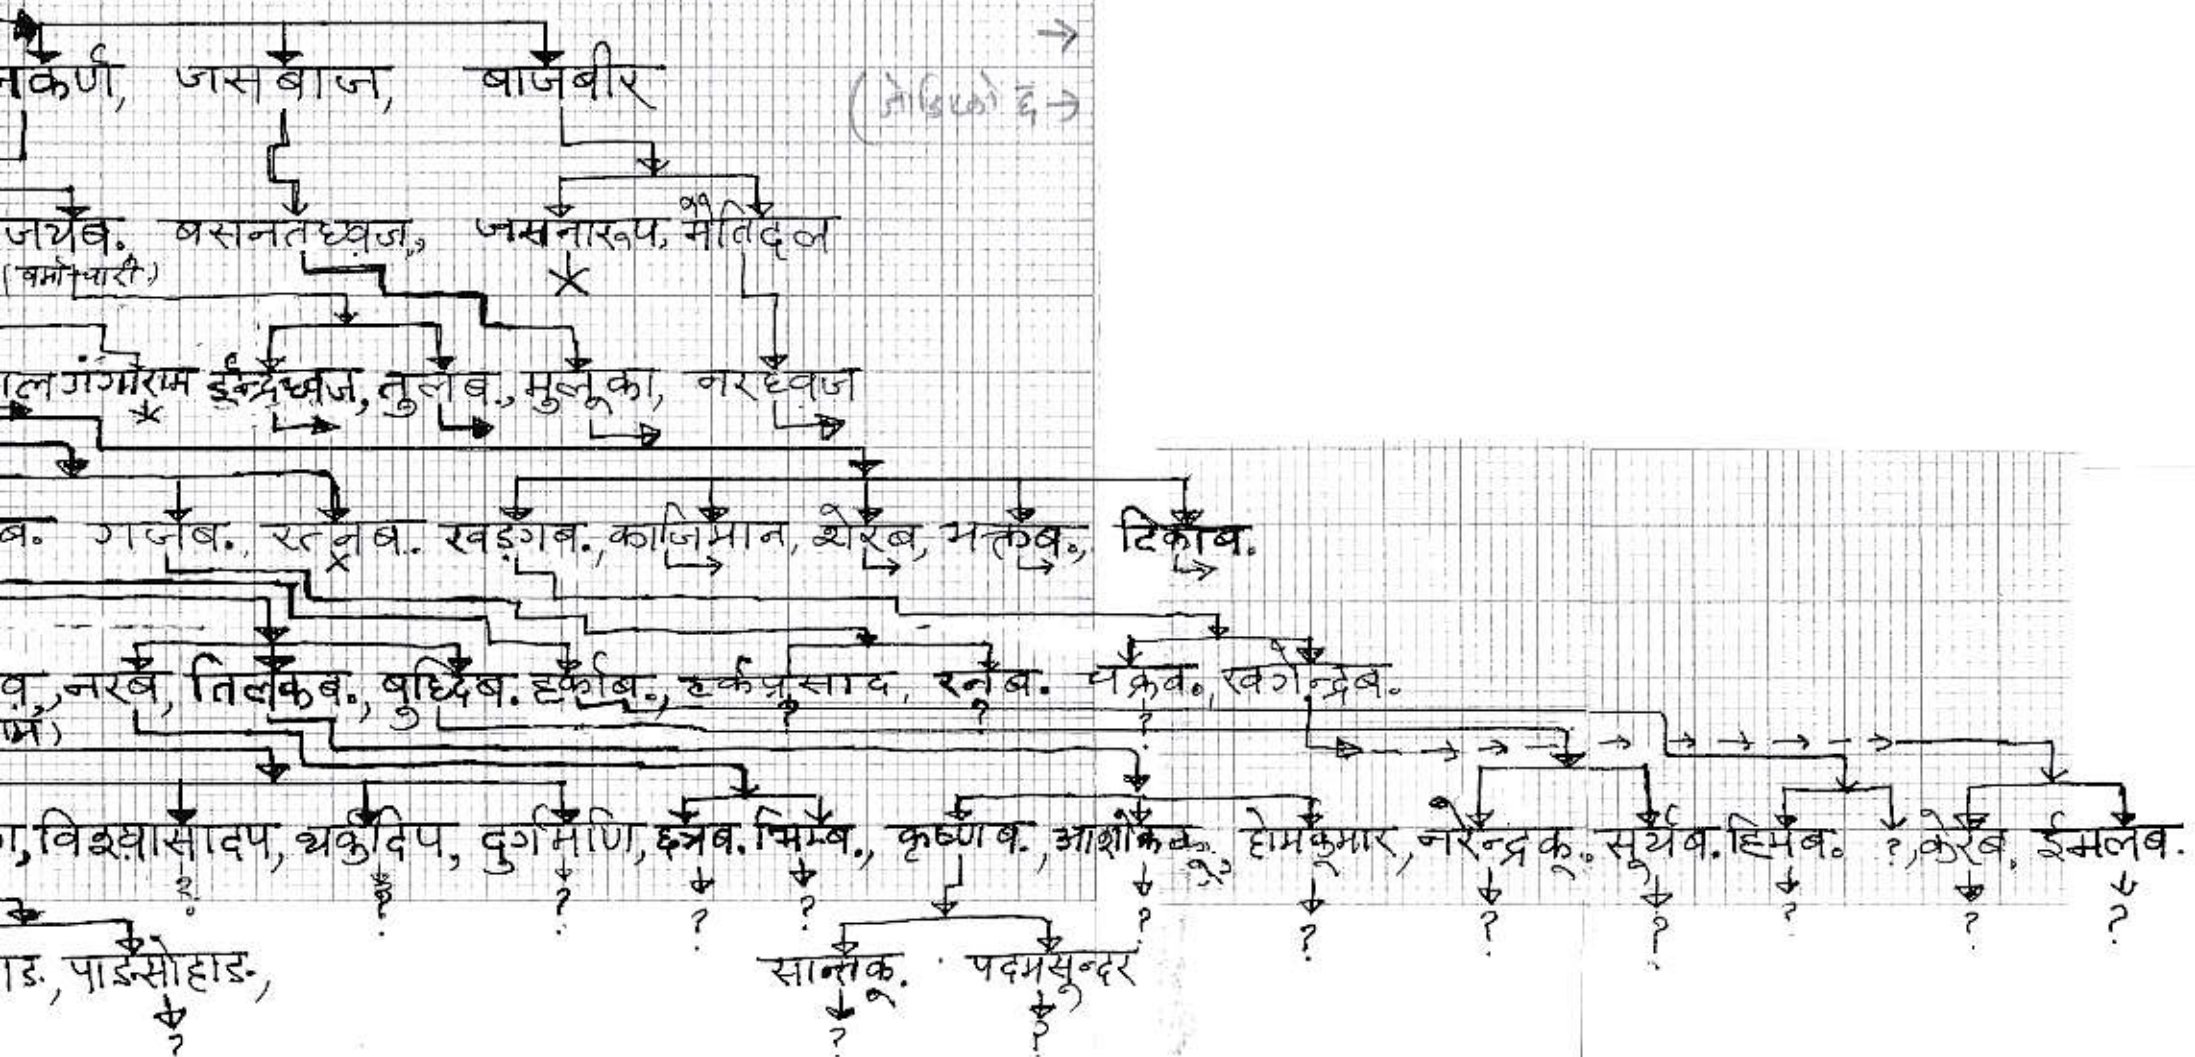 नकर्ण, जसबाज, बाजबीर
जयब. बसनतध्वज,, जसनारूप, मोतिदल
गंगाराम ईन्द्रध्वज, तुलब., मुलूका, नरध्वज
ब. गजब., रत्नब. खड्गब., काजिमान, शेरब, भक्तब., टिकाब.
ब, नरब, तिलकब., बुध्दिब. हर्काब., हर्कप्रसाद, रनब. चक्रब., खगेन्द्रब.
दुर्गमणि, छत्रब. भिम्ब., कृष्णब., होमकुमार, नरेन्द्रकु. सुर्यब. हिमब. ?, केरब, ईमलब.
? ? ? ? ? ? ? ? ? ? ? ?
सान्तकु. पदमसुन्दर
? ? ?